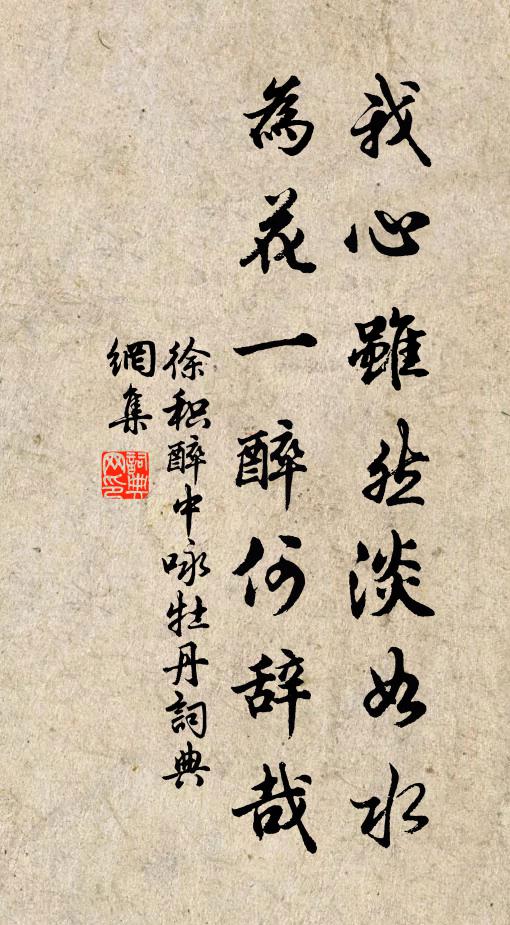 我心雖然淡如水
為花一醉何辞哉
徐积醉中咏牡丹詞典
網集
詞典网印